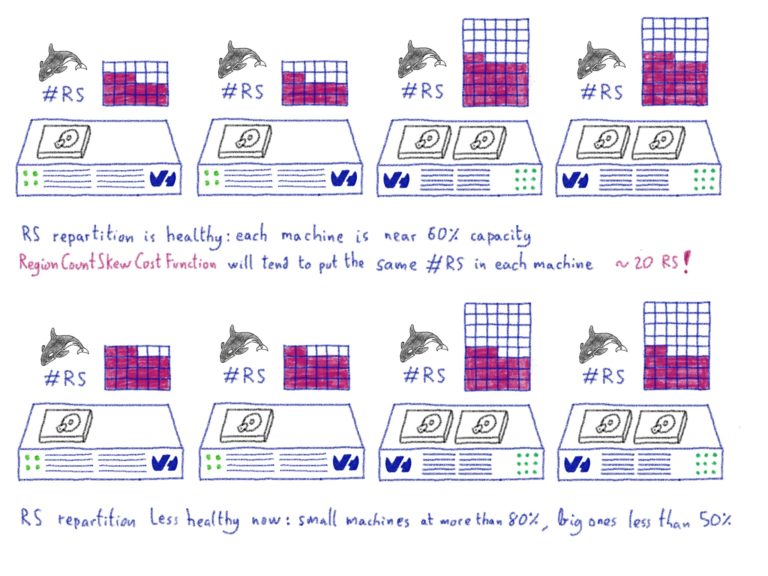 #RS #RS #RS #RS
RS repartition is healthy: each machine is near 60% capacity
RegionCountSkewCostFunction will tend to put the same #RS in each machine ~20 RS!
#RS #RS #RS #RS
RS repartition Less healthy now: small machines at more than 80%, big ones less than 50%